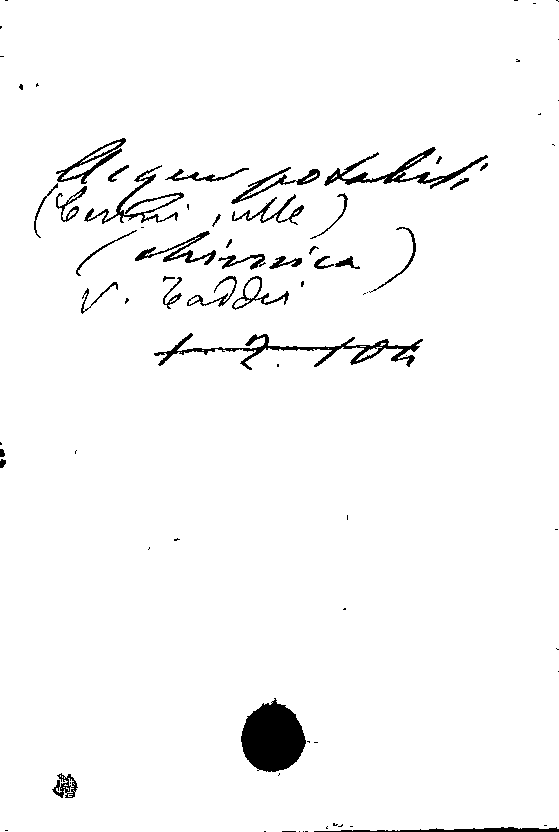 Acque potabili
(Cenni sulle)
(chimica)
V. Taddei
1. 2. 104